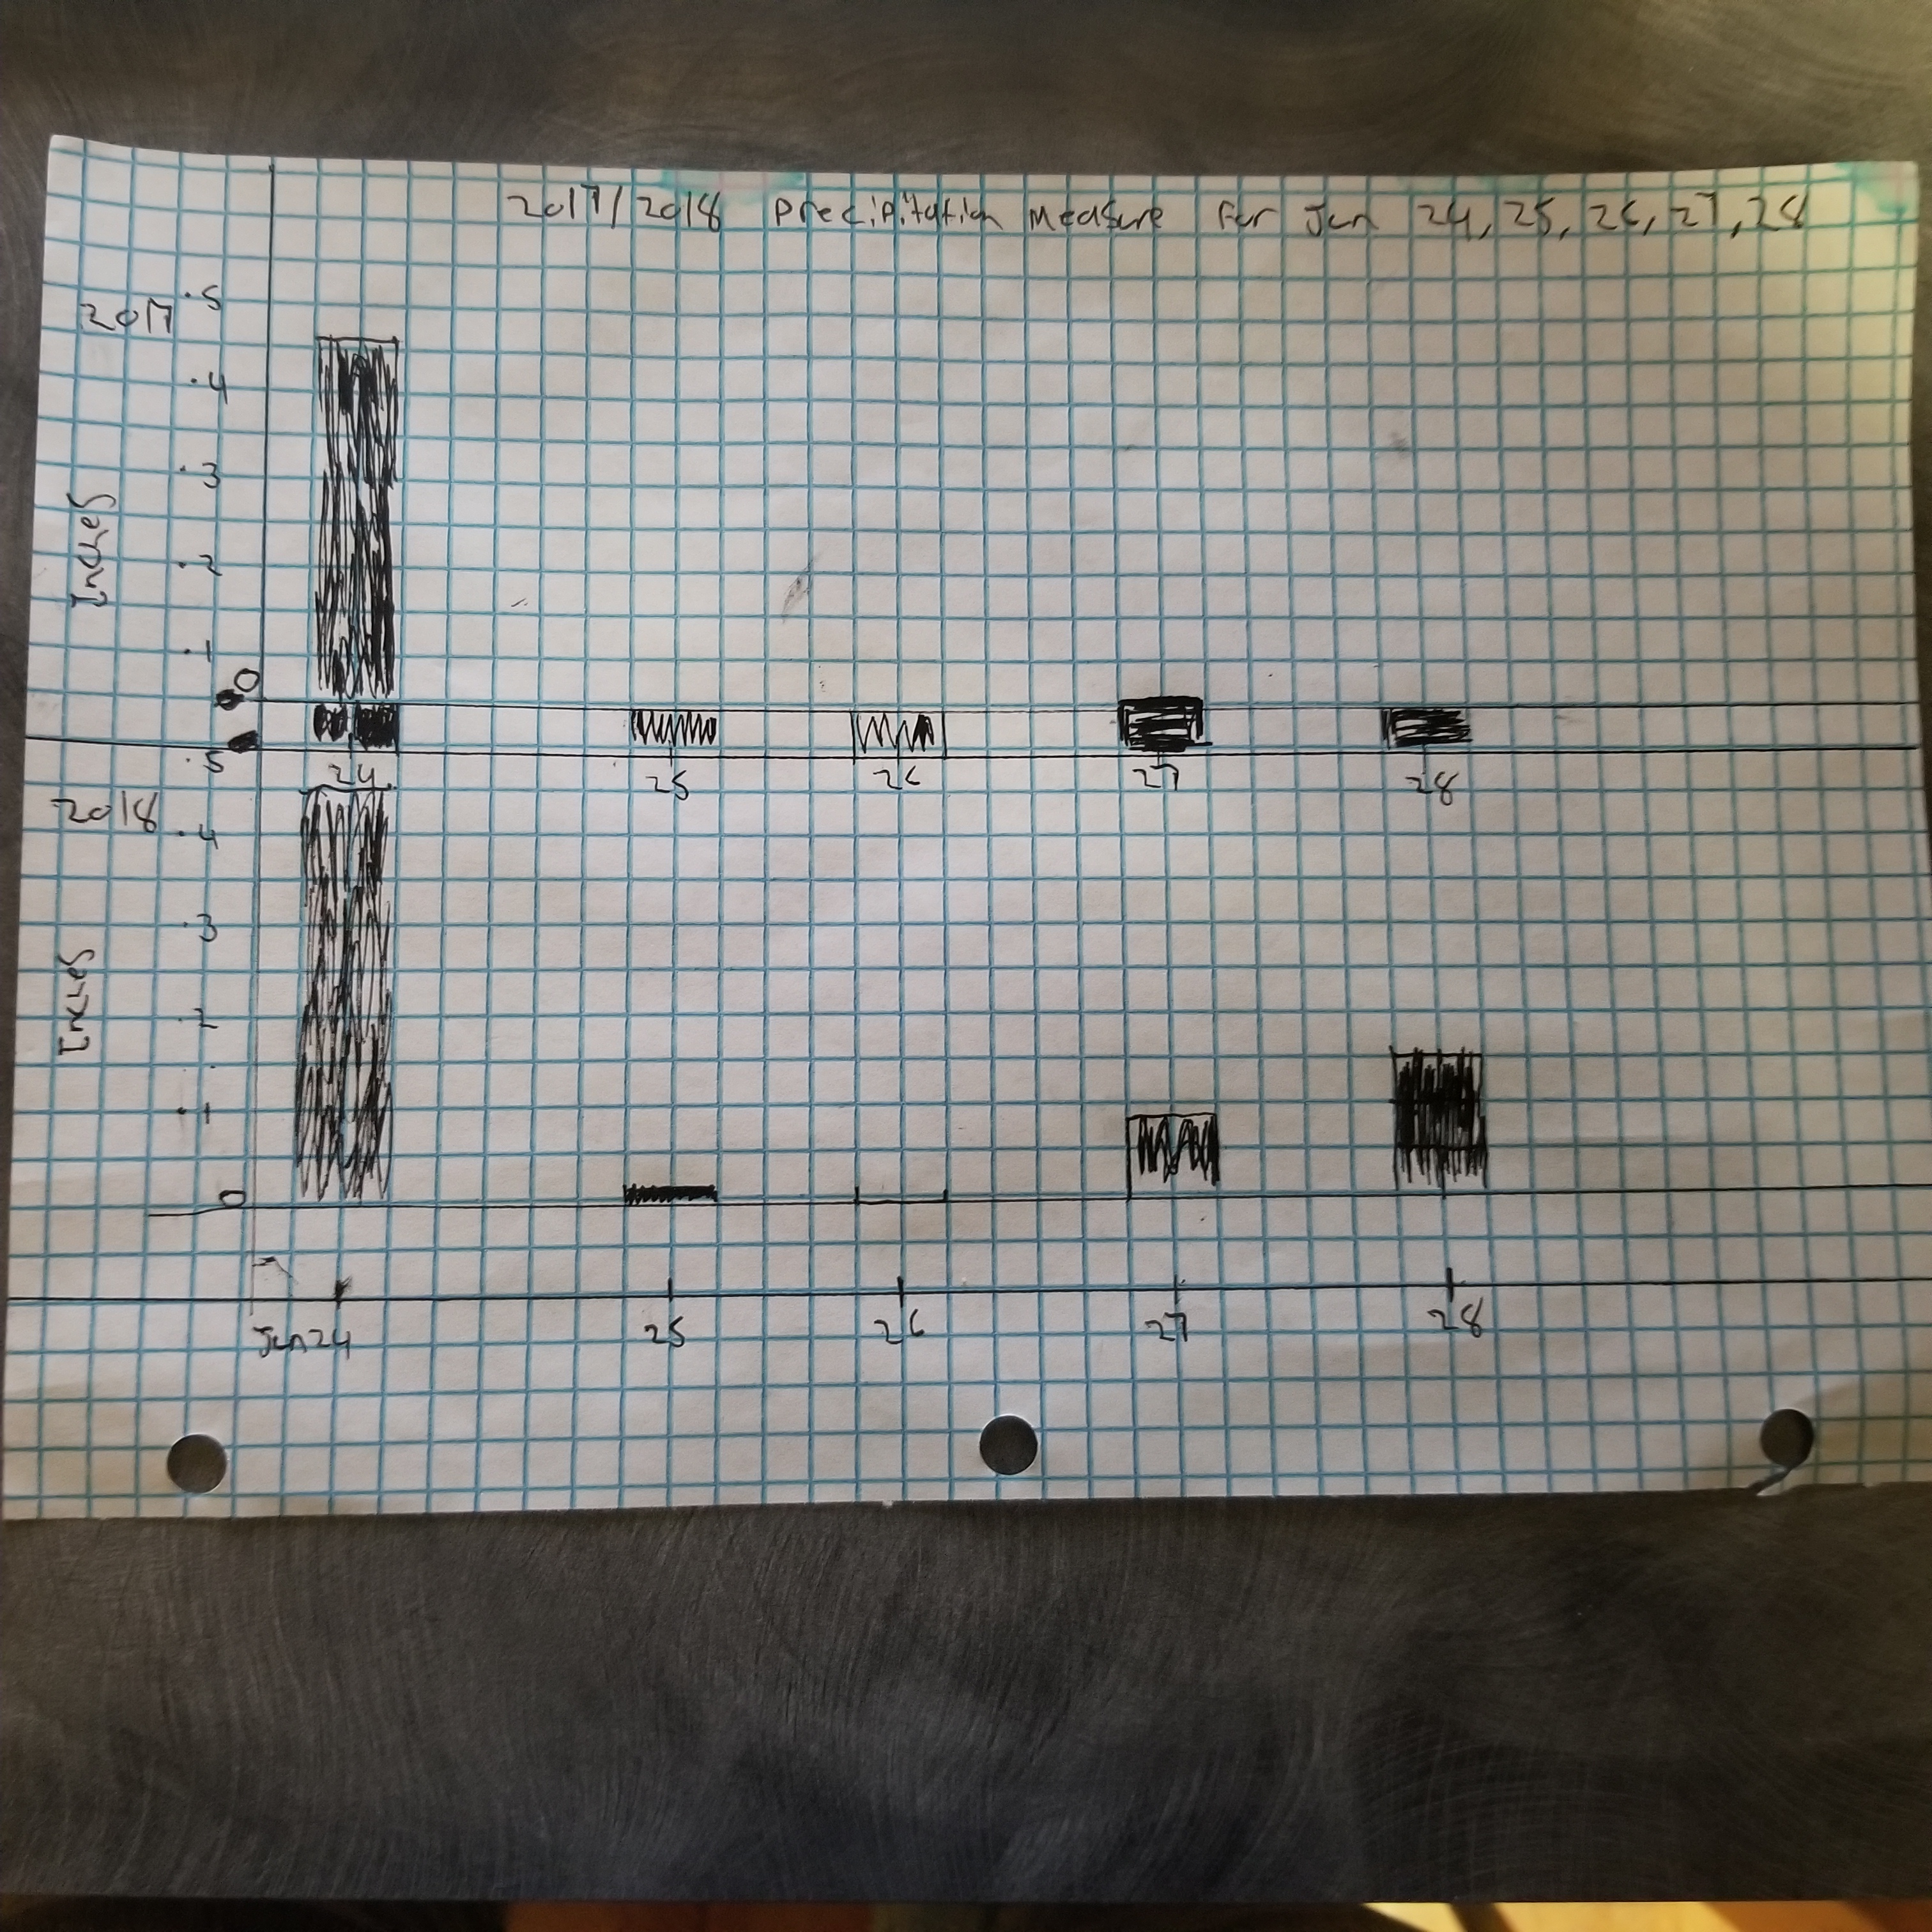 2017/2018 Precipitation Measure For Jan 24, 25, 26, 27, 28
2017
Inches
.5
.4
.3
.2
.1
0
24 25 26 27 28
2018
Inches
.5
.4
.3
.2
.1
0
Jan 24 25 26 27 28